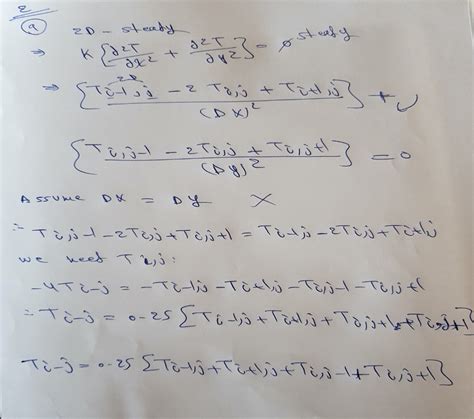 2
a
2D - steady
⇒ K {∂2T/∂x2 + ∂2T/∂y2} = 0 steady
2D
⇒ {Ti-1,j - 2Ti,j + Ti+1,j / (DX)^2} +
{Ti,j-1 - 2Ti,j + Ti,j+1 / (Dy)^2} = 0
Assume DX = Dy X
∴ Ti,j-1 - 2Ti,j + Ti,j+1 = Ti-1,j - 2Ti,j + Ti+1,j
we need Ti,j:
-4Ti-j = -Ti-1,j - Ti+1,j - Ti,j-1 - Ti,j+1
∴ Ti-j = 0-25 {Ti-1,j + Ti+1,j + Ti,j+1 + Ti,j+1}
Ti-j = 0-25 {Ti-1,j + Ti+1,j + Ti,j-1 + Ti,j+1}